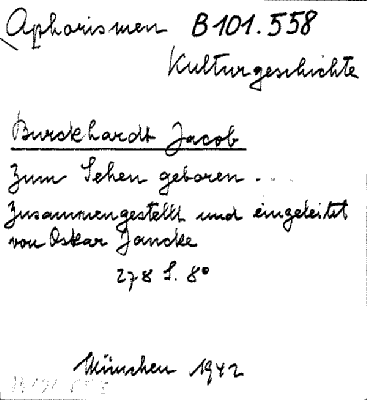 Aphorismen B 101.558
Kulturgeschichte
Burckhardt Jacob
Zum Sehen geboren ...
Zusammengestellt und eingeleitet
von Oskar Jancke
278 S. 8°
München 1942